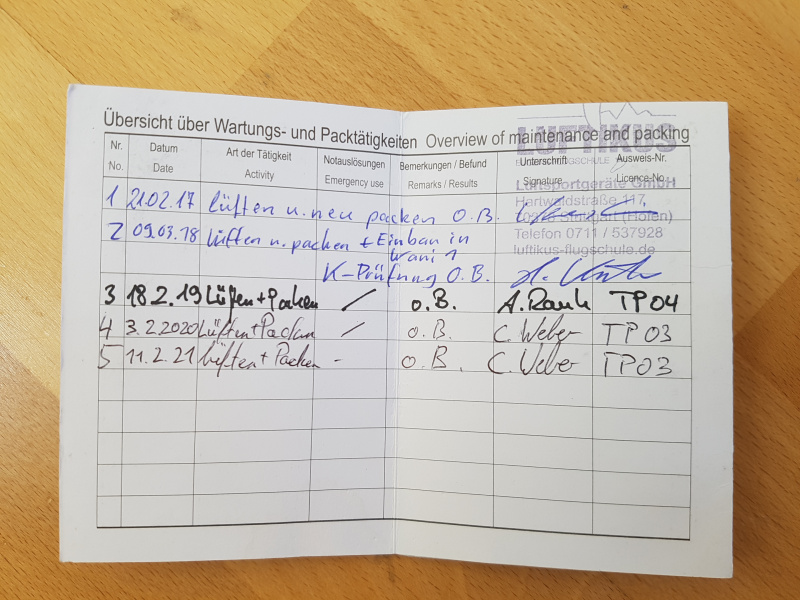 Übersicht über Wartungs- und Packtätigkeiten Overview of maintenance and packing
LUFTIKUS
Nr. Datum Art der Tätigkeit Notauslösungen Bemerkungen / Befund Unterschrift Ausweis-Nr.
No. Date Activity Emergency use Remarks / Results Signature Licence-No.
Luftsportgeräte GmbH
1 21.02.17 lüften u. neu packen O.B.
Hartwaldstraße 117,
Stuttgart (Hofen)
2 09.03.18 lüften u. packen + Einbau in
Telefon 0711 / 537928
Wani 1
luftikus-flugschule.de
K-Prüfung O.B.
3 18.2.19 Lüften + Packen / o.B. A. Rauh TP04
4 3.2.2020 Lüften + Packen / o.B. C. Weber TP03
5 11.2.21 Lüften + Packen - o.B. C. Weber TP03